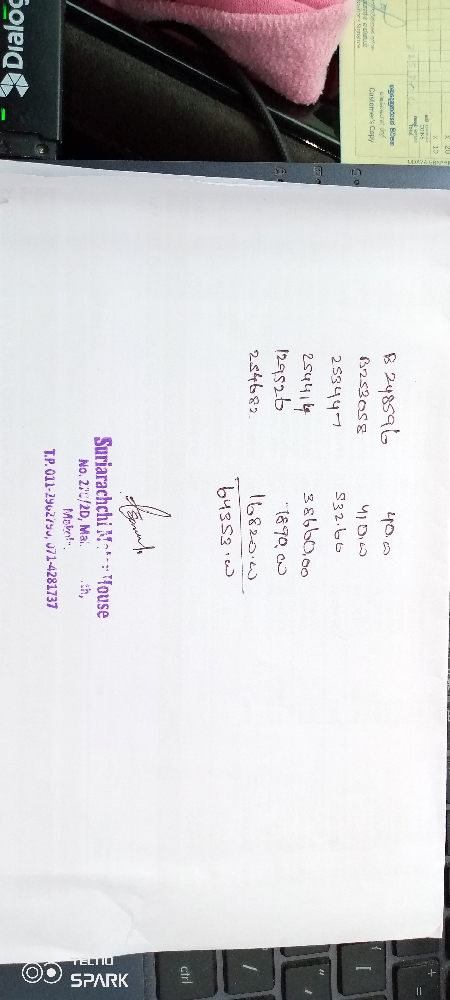 B 248596 40.00
B253058 410.00
253447 533.00
254414 38660.00
129526 7890.00
254682 16820.00
64353.00
Suriarachchi House
No.
T.P. 071-4281737
Dialog
Customer's Copy
ctrl
TECNO
SPARK